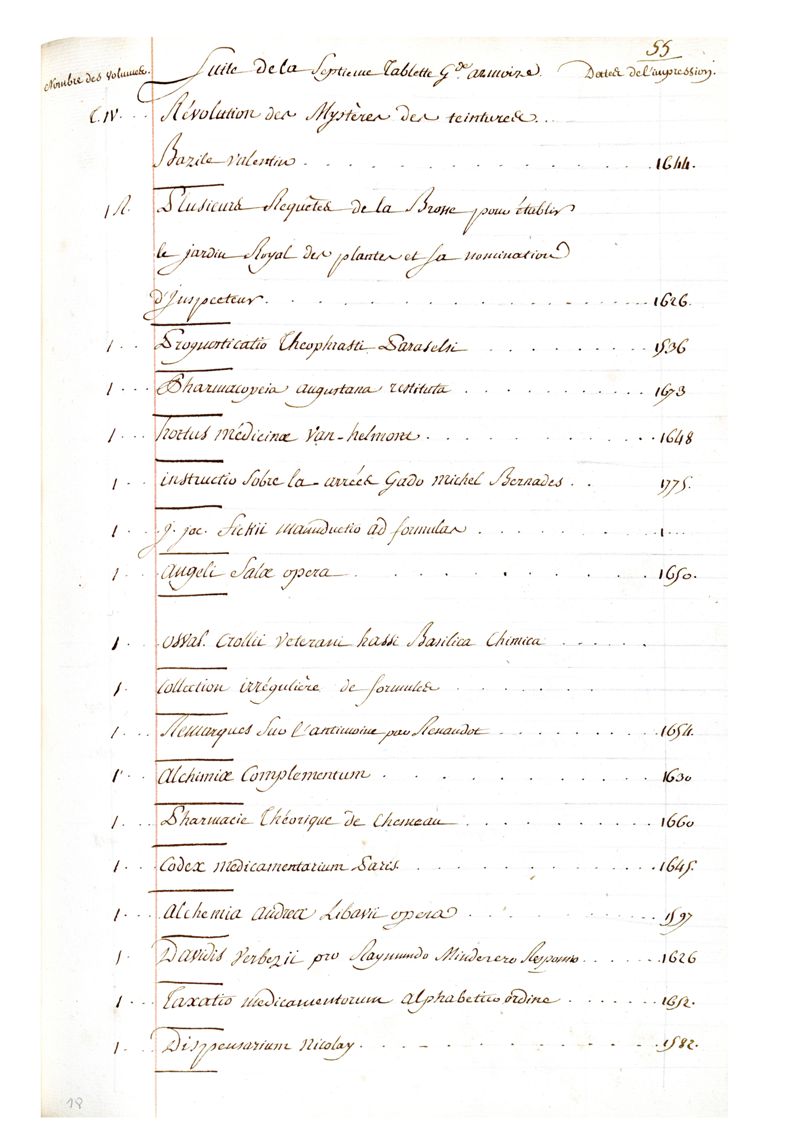 55
Nombre des volumes. Suite de la Septieme Tablette G.de armoire. Dates de l'impression.
T. IV. Révolution des Mystères des teintures
Bazile Valentin 1644.
1 R. Plusieurs Requêtes de la Brosse pour établir
le jardin Royal des plantes et sa nomination
d'Inspecteur 1626.
1 Prognosticatio Theophrasti Paraselsi 1536
1 Pharmacopeia augustana restituta 1673
1 hortus médicinæ Van-helmont 1648
1 instructio sobre la-arrées Gado michel Bernades 1775.
1 J. jac. manuductio ad formulas 1
1 Angeli Salæ opera 1650.
1 osval. Crollii Veterani hassi Basilica Chimica
1 Collection irrégulière de formules
1 Remarques sur l'antimoine par Renaudot 1654.
1 Alchimiæ Complementum 1630
1 Pharmacie Théorique de Cheneau 1660
1 Codex medicamentarium Paris 1645.
1 Alchemia andreæ Libavii opera 1597
1 Davidis Verbezii pro Raymundo Minderero Responsio 1626
1 Taxatio medicamentorum alphabetico ordine 1652.
1 Dispensarium Nicolay 1582.
18